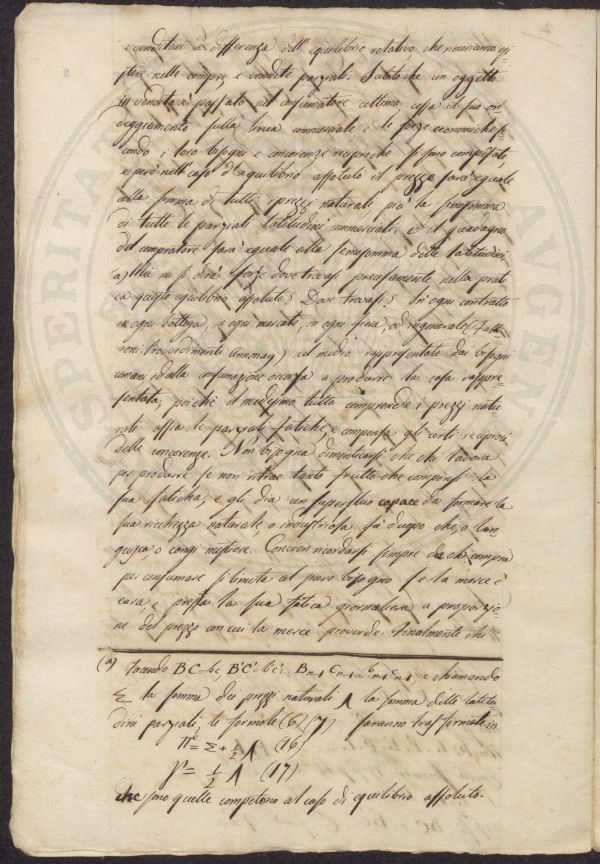 e venditori a differenza dell'equilibrio relativo, che riminiamo esi-
stere nelle compre, e vendite parziali. Subitochè un oggetto
in vendita è passato nel consumatore ultimo, cessa il suo on-
deggiamento sulla linea commerciale e le forze economiche se-
condo i loro bisogni e concorenze reciproche si sono compensate,
e però nel caso di equilibrio assoluto il prezzo sarà eguale
alla somma di tutti i prezzi naturali più la semisomma
di tutte le parziali latitudini commerciali, ed il guadagno
del compratore sarà eguale alla semisomma delle latitudini
a) Mi si dirà forse dove trovasi precisamente nella prat
ca questo equilibrio assoluto? Dove trovasi? In ogni contratto
in ogni bottega, in ogni mercato, in ogni fiera, ed in generale
nel medio rappresentato dai bisogni
umani e dalla consumazione occorsa a produrre la cosa rappre-
sentata, poichè il medesimo tutto comprende i prezzi natu-
rali ossia le parziali fatiche, e compensa gli urti reciproci
delle concorenze. Non bisogna dimenticarsi che chi lavora
per produrre se non ritrae tanto frutto che compensi la
sua faticha, e gli dia un superfluo capace da formare la
sua ricchezza naturale, o industriosa fà d'uopo che, o lan-
guisca o cangi mestiere. Convien ricordarsi sempre da chi compra
per consumare si limita al puro bisogno se la merce è
cara, e presta la sua fatica giornaliera a proporzio-
ne del prezzo con cui la merce provvede. Finalmente chi
(a) Facendo BC=bc, B'C'=b'c'. Bn-1 Cn-1=bn-1 cn-1 e chiamando
Σ la somma dei prezzi naturali Λ la somma delle latitu-
dini parziali, le formole (6) (7) saranno trasformate in
Π = Σ + 1/2 Λ (16)
γ = 1/2 Λ (17)
che sono quelle competono al caso di equilibrio assoluto.